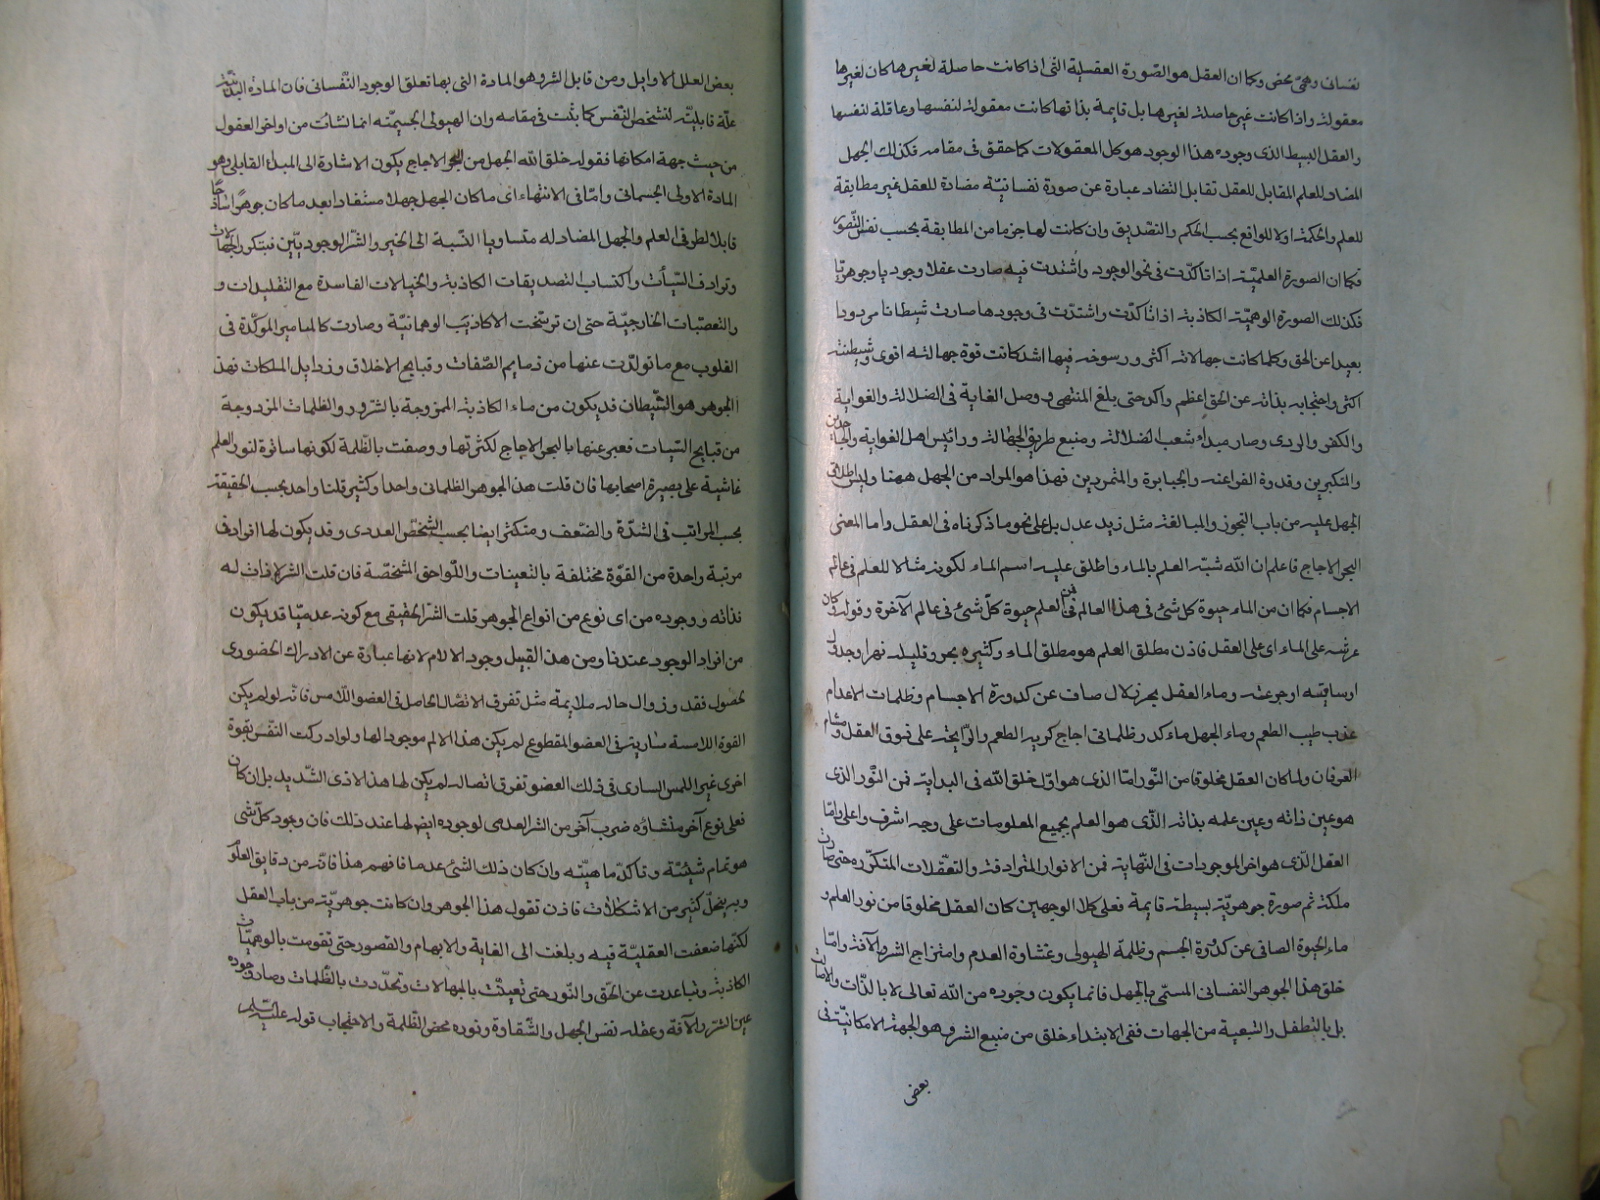 نفسانى وهمى محض وكما ان العقل هو الصورة العقلية التى اذا كانت حاصلة لغيرها كان لغيرها
معقولة واذا كانت غير حاصلة لغيرها بل قايمة بذاتها كانت معقولة لنفسها وعاقلة لنفسها
والعقل البسيط الذى وجوده هذا الوجود هو كل المعقولات كما حقق فى مقامه فكذلك الجهل
المضاد للعلم المقابل للعقل تقابل التضاد عبارة عن صورة نفسانيّة مضادة للعقل غير مطابقة
للعلم والحكمة اولا للواقع بحسب الحكم والتصديق وان كانت لها جزما من المطابقة بحسب نفس التصور
فكما ان الصورة العلميّة اذا تاكدّت فى نحو الوجود واشتدت فيه صارت عقلا وجوديا وجوهريّا
فكذلك الصورة الوهميّة الكاذبة اذا تاكدّت واشتدّت فى وجودها صارت شيطانا مردودا
بعيدا عن الحق وكلما كانت جهالاته اكثر ورسوخه فيها اشد كانت قوة جهالته اقوى وشيطنته
اكثر واحتجابه بذاته عن الحق اعظم واكد حتى بلغ المنتهى ووصل الغاية فى الضلالة والغواية
والكفر والردى وصار مبداء شعب الضلالة ومنبع طريق الجهالة ورائيس اهل الغواية والجاحدين
والمتكبرين وقدوة الفراعنه والجبابرة والمتمردين فهذا هو المراد من الجهل ههنا وليس اطلاق
الجهل عليه من باب التجوز والمبالغة مثل زيد عدل بل على نحو ما ذكرناه فى العقل واما المعنى
البحر الاجاج فاعلم ان الله شبّه العلم بالماء واطلق عليه اسم الماء لكونه مثالا للعلم فى عالم
الاجسام فكما ان من الماء حيوة كل شئ فى هذا العالم فمن العلم حيوة كلّ شئ فى عالم الآخرة وقوله وكان
عرشه على الماء اى على العقل فاذن مطلق العلم هو مطلق الماء وكثيره بحر وقليله نهر او جدول
او ساقية او جرعة وماء العقل بحر زلال صاف عن كدورة الاجسام وظلمات الاعدام
عذب طيب الطعم وماء الجهل ماء كدر ظلمانى اجاج كريه الطعم والرّايحة على ذوق العقل ومشام
العرفان ولما كان العقل مخلوقا من النّور امّا الذى هو اوّل خلق الله فى البداية فمن النّور الذى
هو عين ذاته وعين علمه بذاته الذّى هو العلم بجميع المعلومات على وجه اشرف واعلى وامّا
العقل الذّى هو اخر الموجودات فى النّهاية فمن الانوار المترادفة والتعّقلات المتكرّره حتى صارت
ملكة ثم صورة جوهريّة بسيطة قايمة فعلى كلا الوجهين كان العقل مخلوقا من نور العلم و
ماء الحيوة الصافى عن كدورة الجسم وظلمة الهيولى وغشاوة العدم وامتزاج الشر والآفة وامّا
خلق هذا الجوهر النفسانى المسمّى بالجهل فانما يكون وجوده من الله تعالى لا بالذّات والاصالة
بل بالتطفل والتبعية من الجهات ففى الابتداء خلق من منبع الشرور هو الجهة الامكانيّة فى
بعض
بعض العلل الاوايل ومن قابل الشرور هو المادة التى بها تعلق الوجود النّفسانى فان المادة البدنيّة
علّة قابليّة لتشخص النّفس كما بثت فى مقامه وان الهيولى الجسميّة انما نشات من اواخر العقول
من حيث جهة امكانها فقوله خلق الله الجهل من البحر الاجاج يكون الاشارة الى المبداء القابلى وهو
المادة الاولى الجسمانى وامّا فى الانتهاء اى ما كان الجهل جهلا مستفادا بعد ما كان جوهرا ساذجا
قابلا لطرفى العلم والجهل المضاد له متساويا النّسبة الى الخير والشرّ الوجوديّين فبتكرر الجهالات
وترادف السّيأت واكتساب التصديقات الكاذبة والخيالات الفاسدة مع التقليدات و
والتعصّبات الخارجيّة حتى ان ترسّخت الاكاذيب الوهمانيّة وصارت كالمسامير الموكّدة فى
القلوب مع ما تولدّت عنها من ذمايم الصّفات وقبايح الاخلاق ورذايل الملكات فهذا
الجوهر هو الشّيطان قد يكون من ماء الكاذبة الممزوجة بالشرور والظلمات المزدوجة
من قبايح السّيات فعبر عنها بالبحر الاجاج لكثرتها ووصفت بالظّلمة لكونها ساترة لنور العلم
غاشية على بصيرة اصحابها فان قلت هذ الجوهر الظلمانى واحد او كثير قلنا واحد بحسب الحقيقة
بحسب المراتب فى الشدّة والضّعف ومتكثر ايضا بحسب الشّخص العددى وقد يكون لها افراد فى
مرتبة واحدة من القوّة مختلفة بالتعينات واللّواحق المشخصّة فان قلت الشر لا ذات له
فذاته ووجوده من اى نوع من انواع الجوهر قلت الشرّ الحقيقى مع كونه عدميّا قد يكون
من افراد الوجود عندنا ومن هذ القبيل وجود الالام لانها عبارة عن الادراك الحضورى
بحصول فقد وزوال حاله ملايمة مثل تفرق الاتصّال الحاصل فى العضو اللّامس فانّه لو لم يكن
القوة اللامسة ساريتة فى العضو المقطوع لم يكن هذا الالم موجودا لها ولو ادركت النّفس بقوة
اخرى غير اللمس السارى فى ذلك العضو تفرق اتصاله لم يكن لها هذ الاذى الشّديد بل ان كان
فعلى نوع آخر منشاؤه ضرب آخر من الشر العدمى لوجوده ايضا لها عند ذلك فان وجود كلّ شئ
هو تمام شيئيّة وتاكدّ ماهيّته وان كان ذلك الشئ عدما فافهم هذا فانّه من دقايق العلوم
وبه ينحلّ كثير من الاشكالات فاذن تقول هذا الجوهر وان كانت جوهريّة من باب العقل
لكنّها ضعفت العقليّة فيه وبلغت الى الغاية والابهام والقصور حتى تقومت بالوهميّات
الكاذبة وتباعدت عن الحّق والنّور حتى تعينّت بالجهالات وتحدّدت بالظّلمات وصار وجوده
عين الشرّ والآفة وعقله نفس الجهل والشّقاوة ونوره محض الظّلمة والاحتجاب قوله عليه السّلم